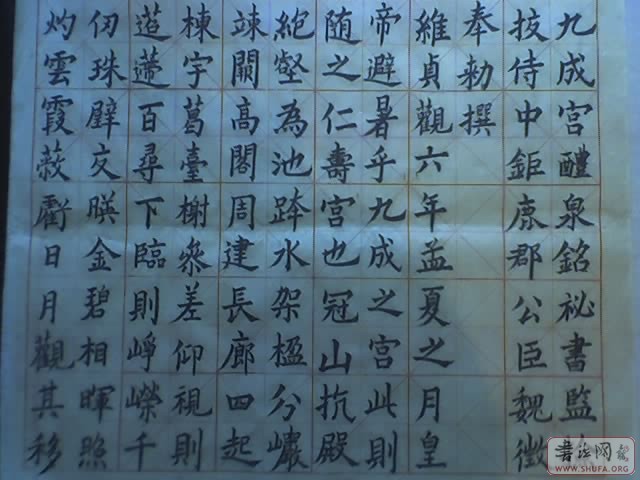 九成宮醴泉銘祕書監
挍侍中鉅鹿郡公臣魏徵
奉勑撰
維貞觀六年孟夏之月皇
帝避暑乎九成之宮此則
随之仁壽宮也冠山抗殿
絕壑為池跨水架楹分巗
竦闕高閣周建長廊四起
棟宇葛臺榭叅差仰視則
迢遰百尋下臨則崢嶸千
仞珠璧交暎金碧相暉照
灼雲霞蔽虧日月觀其移
WWW.SHUFA.ORG